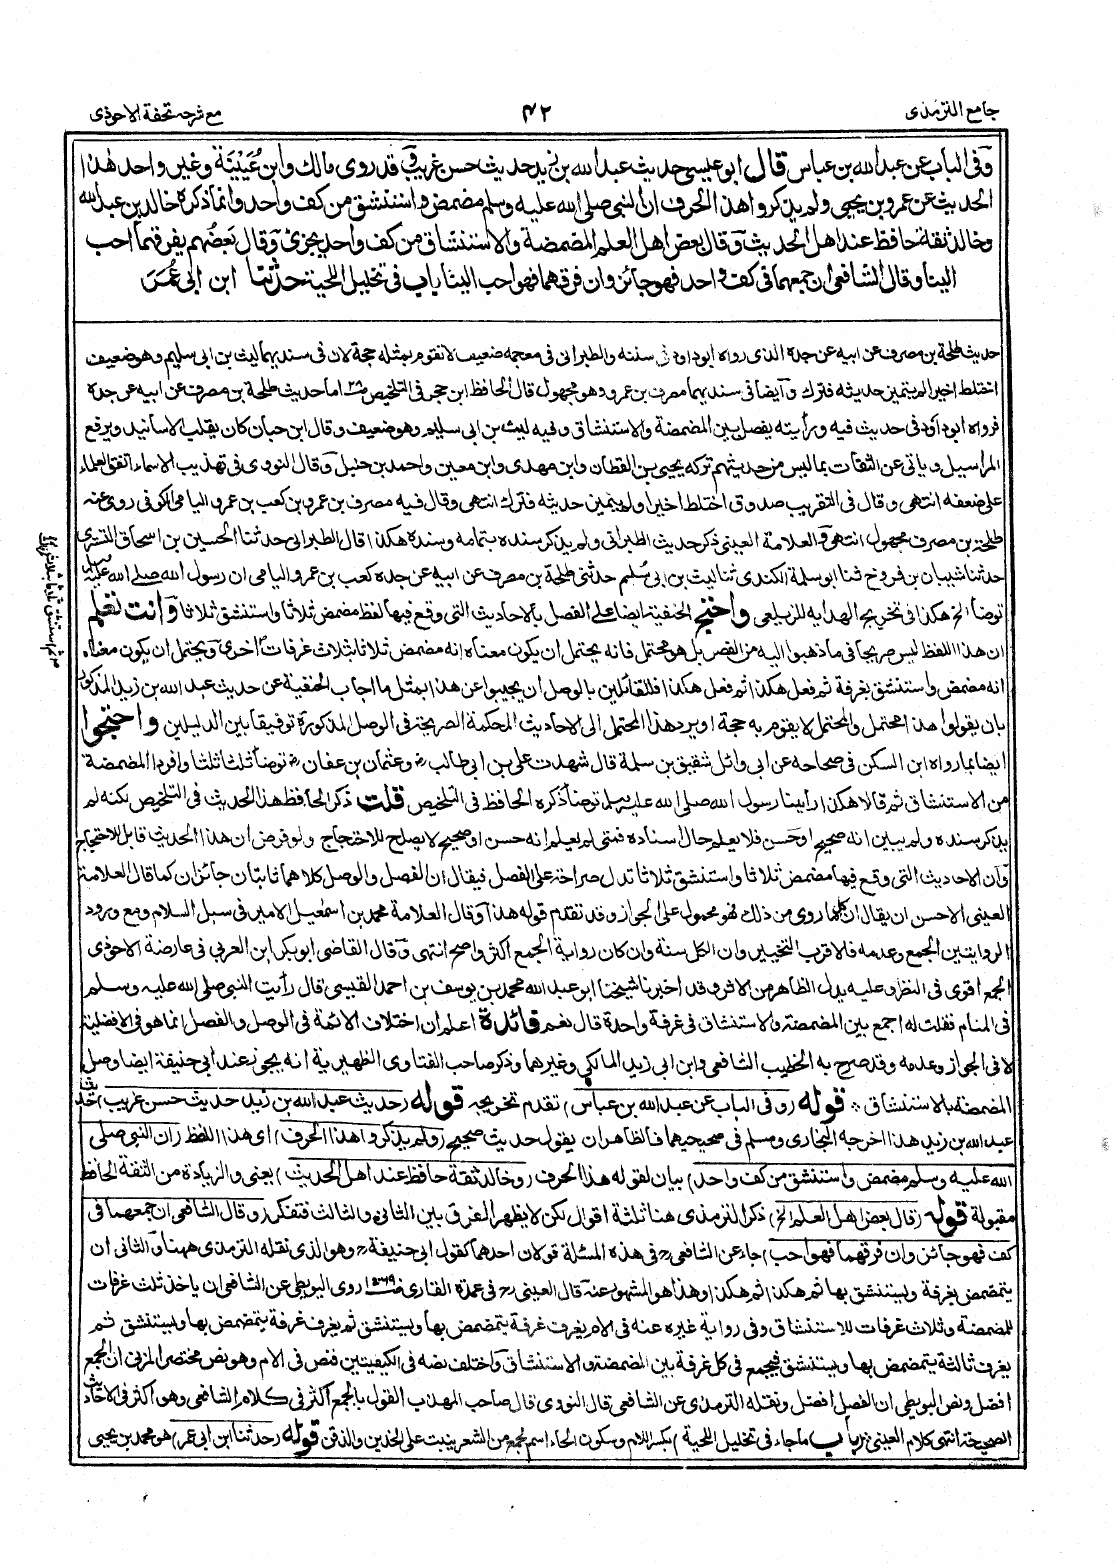 جامع الترمذى
٤٢
مع شرحه تحفة الاحوذى
وفى الباب عن عبد الله بن عباس قال ابو عيسى حديث عبد الله بن زيد حديث حسن غريب وقد روى مالك وابن عُيَيْنَة وغير واحد هذا
الحديث عن عمرو بن يحيى ولم يذكروا هذا الحرف ان النبى صلى الله عليه وسلم مضمض واستنشق من كف واحد وانما ذكره خالد بن عبد الله
وخالد ثقة حافظ عند اهل الحديث وقال بعض اهل العلم المضمضة والاستنشاق من كف واحد يجزئ وقال بعضُهم يفرقهما احب
الينا وقال الشافعى ان جمعهما فى كف واحد فهو جائز وان فرقهما فهو احب الينا باب فى تخليل اللحية حدثنا ابن ابى عُمَرَ
حديث طلحة بن مصرف عن ابيه عن جده الذى رواه ابو داود فى سننه والطبرانى فى معجمه ضعيف لا تقوم بمثله حجة لان فى سندهما ليث بن ابى سليم وهو ضعيف
اختلط اخيرا ولم يتميز حديثه فترك وآيضا فى سندهما مصرف بن عمرو وهو مجهول قال الحافظ ابن حجر فى التلخيص ص٢٨ اما حديث طلحة بن مصرف عن ابيه عن جده
فرواه ابو داود فى حديث فيه ورأيته يفصل بين المضمضة والاستنشاق وفيه ليث بن ابى سليم وهو ضعيف وقال ابن حبان كان يقلب الاسانيد ويرفع
المراسيل ويأتى عن الثقات بما ليس من حديثهم تركه يحيى بن القطان وابن مهدى وابن معين واحمد بن حنبل وقال النووى فى تهذيب الاسماء اتفق العلماء
على ضعفه انتهى وقال فى التقريب صدوق اختلط اخيرا ولم يتميز حديثه فترك انتهى وقال فيه مصرف بن عمرو بن كعب بن عمرو اليامى الكوفى روى عنه
طلحة بن مصرف مجهول انتهى والعلامة العينى ذكر حديث الطبرانى ولم يذكر سنده بتمامه وسنده هكذا قال الطبرانى حدثنا الحسين بن اسحاق التسترى
حدثنا شيبان بن فروخ ثنا ابو سلمة الكندى ثنا ليث بن ابى سُليم حدثنى طلحة بن مصرف عن ابيه عن جده كعب بن عمرو اليامى ان رسول الله صلى الله عليه وسلم
توضأ الخ هكذا فى تخريج الهدايه للزيلعى واحتج الحنفية ايضا على الفصل بالاحاديث التى وقع فيها لفظ مضمض ثلاثا واستنشق ثلاثا وانت تعلم
ان هذا اللفظ ليس صريحا فى ما ذهبوا اليه من الفصل بل هو محتمل فانه يحتمل ان يكون معناه انه مضمض ثلاثا بثلاث غرفات اخرى ويحتمل ان يكون معناه
انه مضمض واستنشق بغرفة ثم فعل هكذا ثم فعل هكذا فللقائلين بالوصل ان يجيبوا عن هذا بمثل ما اجاب الحنفية عن حديث عبد الله بن زيد المذكور
بان يقولوا هذا محتمل والمحتمل لا يقوم به حجة او يرد هذا المحتمل الى الاحاديث المحكمة الصريحة فى الوصل المذكورة توفيقا بين الدليلين واحتجوا
ايضا بما رواه ابن السكن فى صحاحه عن ابى وائل شقيق بن سلمة قال شهدت على بن ابى طالب وعثمان بن عفان توضأ ثلثا ثلثا وافردا المضمضة
من الاستنشاق ثم قالا هكذا رأينا رسول الله صلى الله عليه وسلم توضأ ذكره الحافظ فى التلخيص قلت ذكر الحافظ هذا الحديث فى التلخيص لكنه لم
يذكر سنده ولم يبين انه صحيح او حسن فلا يعلم حال اسناده فمتى لم يعلم انه حسن او صحيح لا يصلح للاحتجاج ولو فرض ان هذا الحديث قابل للاحتجاج
وآن الاحاديث التى وقع فيها مضمض ثلاثا واستنشق ثلاثا تدل صراحة على الفصل فيقال ان الفصل والوصل كلاهما ثابتان جائزان كما قال العلامة
العينى الاحسن ان يقال ان كلما روى من ذلك فهو محمول على الجواز وقد تقدم قوله هذا وقال العلامة محمد بن اسمعيل الامير فى سبل السلام ومع ورود
الروايتين الجمع وعدمه فالاقرب التخيير وان الكل سنة وان كان رواية الجمع اكثر واصح انتهى وقال القاضى ابو بكر ابن العربى فى عارضة الاحوذى
الجمع اقوى فى النظر وعليه يدل الظاهر من الاثر وقد اخبرنا شيخنا ابو عبد الله محمد بن يوسف بن احمد القيسى قال رأيت النبى صلى الله عليه وسلم
فى المنام فقلت له اجمع بين المضمضة والاستنشاق فى غرفة واحدة قال نعم فائدة اعلم ان اختلاف الائمة فى الوصل والفصل انما هو فى الافضلية
لا فى الجواز وعدمه وقد صرح به الخطيب الشافعى وابن ابى زيد المالكى وغيرهما وذكر صاحب الفتاوى الظهيرية انه يجوز عند ابى حنيفة ايضا وصل
المضمضة بالاستنشاق قوله (وفى الباب عن عبد الله بن عباس) تقدم تخريجه قوله (حديث عبد الله بن زيد حديث حسن غريب) حديث
عبد الله بن زيد هذا اخرجه البخارى ومسلم فى صحيحيهما فالظاهر ان يقول حديث صحيح (ولم يذكروا هذا الحرف) اى هذا اللفظ (ان النبى صلى
الله عليه وسلم مضمض واستنشق من كف واحد) بيان لقوله هذا الحرف (وخالد ثقة حافظ عند اهل الحديث) يعنى والزيادة من الثقة الحافظ
مقبولة قوله (وقال بعض اهل العلم الخ) ذكر الترمذى هنا ثلثة اقوال لكن لا يظهر الفرق بين الثانى والثالث فتفكر (وقال الشافعى ان جمعهما فى
كف فهو جائز وان فرقهما فهو احب) جاء عن الشافعى فى هذه المسئلة قولان احدهما كقول ابى حنيفة وهو الذى نقله الترمذى ههنا والثانى ان
يتمضمض بغرفة ويستنشق بها ثم هكذا ثم هكذا وهذا هو المشهور عنه قال العينى فى عمدة القارى روى البويطى عن الشافعى ان ياخذ ثلث غرفات
للمضمضة وثلاث غرفات للاستنشاق وفى رواية غيره عنه فى الام يغرف غرفة يتمضمض بها ويستنشق ثم يغرف غرفة يتمضمض بها ويستنشق ثم
يغرف ثالثة يتمضمض بها ويستنشق فيجمع فى كل غرفة بين المضمضة والاستنشاق واختلف نصه فى الكيفيتين فنص فى الام وهو نص مختصر المزنى ان الجمع
افضل ونص البويطى ان الفصل افضل ونقله الترمذى عن الشافعى قال النووى قال صاحب المهذب القول بالجمع اكثر فى كلام الشافعى وهو اكثر فى الاحاديث
الصحيحة انتهى كلام العينى (باب ما جاء فى تخليل اللحية) بكسر اللام وسكون الحاء اسم لجمع من الشعر ينبت على الخدين والذقن قوله (حدثنا ابن ابى عمر) هو محمد بن يحيى